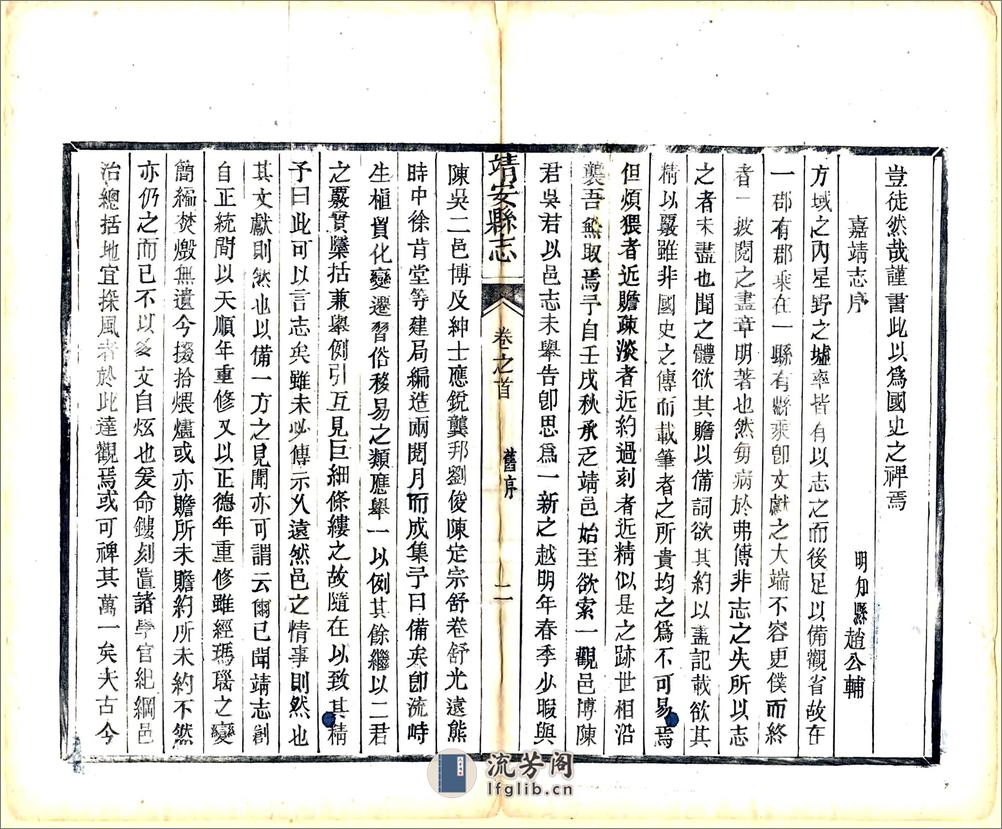 豈徒然哉謹書此以爲國史之裨焉
嘉靖志序
明知縣趙公輔
方域之內星野之墟率皆有以志之而後足以備觀省故在
一郡有郡乘在一縣有縣乘卽文獻之大端不容更僕而終
者一披閱之盡章明著也然每病於弗傳非志之失所以志
之者未盡也聞之體欲其贍以備詞欲其約以盡記載欲其
精以覈雖非國史之傳而載筆者之所貴均之爲不可易焉
但煩猥者近贍疎淡者近約過刻者近精似是之跡世相沿
襲吾無取焉予自壬戌秋承乏靖邑始至欲索一觀邑博陳
君吳君以邑志未舉告卽思爲一新之越明年春季少暇與
靖安縣志
卷之首
舊序
二
陳吳二邑博及紳士應銳龔邦劉俊陳定宗舒卷舒光遠熊
時中徐肯堂等建局編造兩閱月而成集予曰備矣卽流峙
生植貿化變遷習俗移易之類應舉一以例其餘繼以二君
之覈實檃括兼舉例引互見巨細條縷之故隨在以致其精
予曰此可以言志矣雖未必傳示久遠然邑之情事則然也
其文獻則然也以備一方之見聞亦可謂云爾已聞靖志創
自正統間以天順年重修又以正德年重修雖經瑪瑙之變
簡編焚燬無遺今掇拾煨燼或亦贍所未贍約所未約不然
亦仍之而已不以多文自炫也爰命鏤刻置諸學官紀綱邑
治總括地宜採風者於此達觀焉或可裨其萬一矣夫古今
流芳阁
lfglib.cn